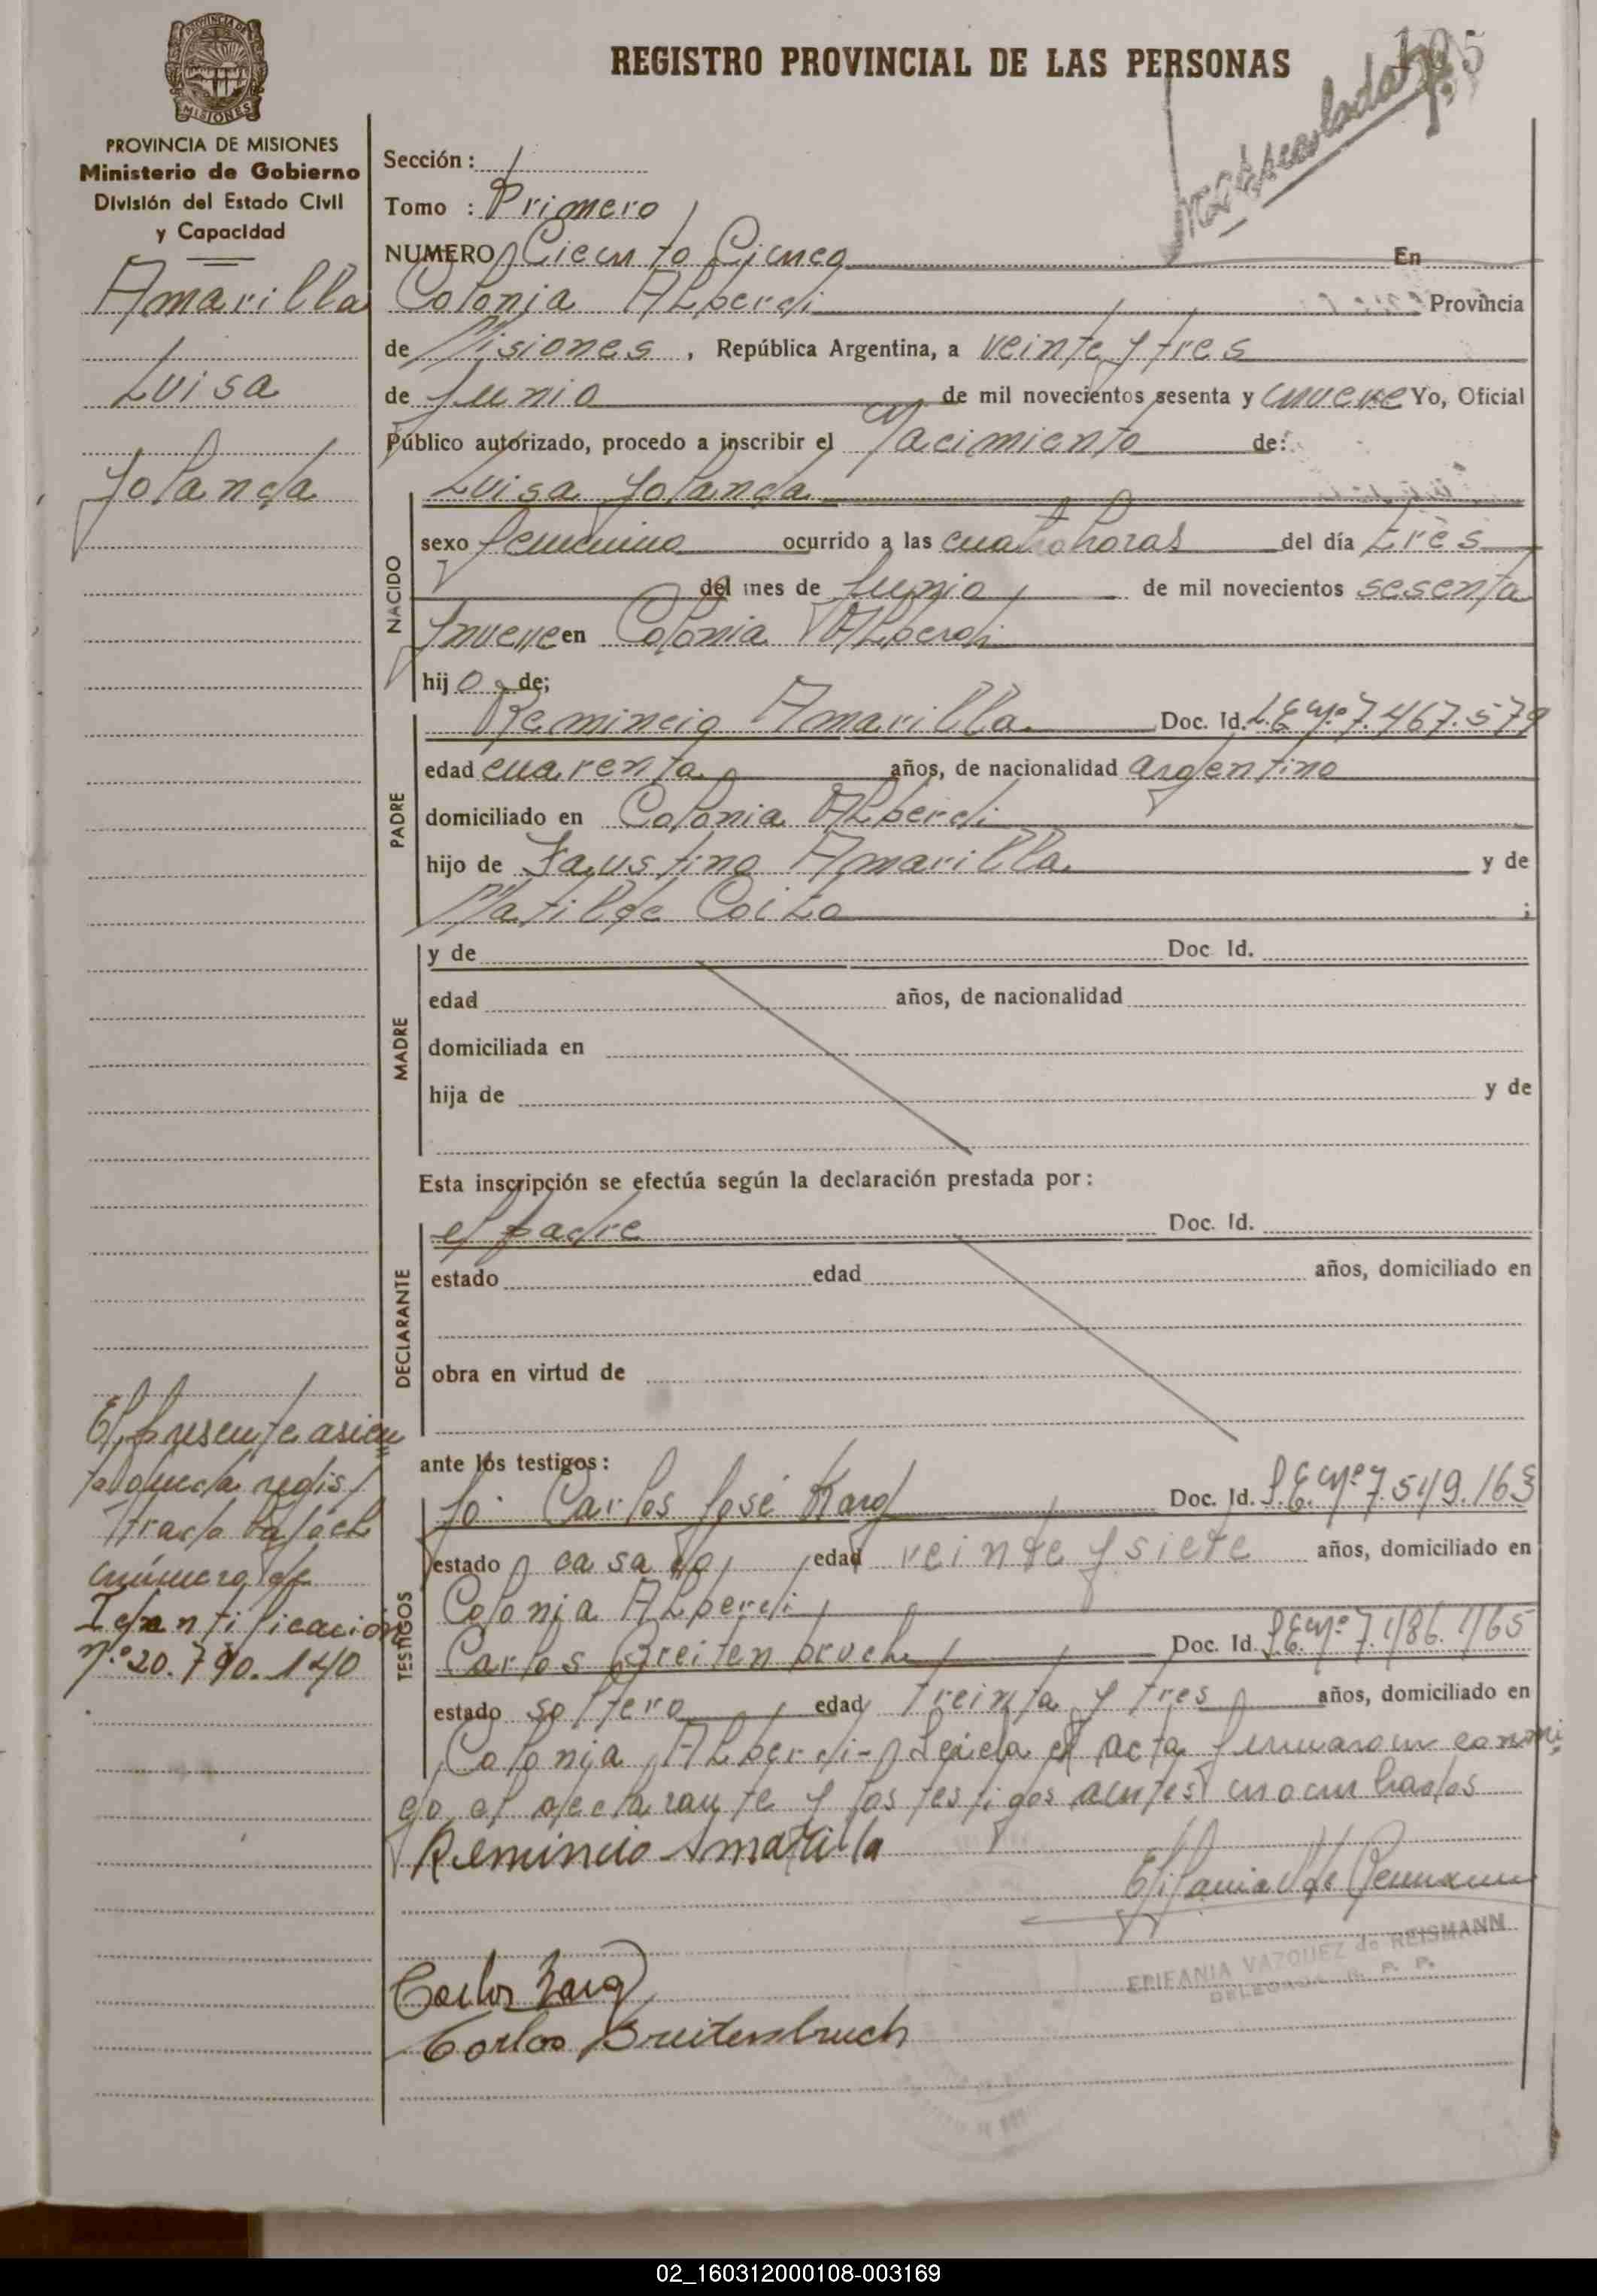 REGISTRO PROVINCIAL DE LAS PERSONAS
105
PROVINCIA DE MISIONES
Ministerio de Gobierno
División del Estado Civil
y Capacidad
Amarilla
Luisa
Yolanda
Sección: 1
Tomo : Primero
NUMERO Ciento Cinco En
Colonia Alberdi Provincia
de Misiones, República Argentina, a veinte y tres
de Junio de mil novecientos sesenta y nueve Yo, Oficial
Público autorizado, procedo a inscribir el Nacimiento de:
NACIDO
Luisa Yolanda
sexo femenino ocurrido a las cuatro horas del día tres
del mes de Junio de mil novecientos sesenta
y nueve en Colonia Alberdi
hij a de;
PADRE
Remincio Amarilla Doc. Id. L.E Nº 7.467.579
edad cuarenta años, de nacionalidad argentino
domiciliado en Colonia Alberdi
hijo de Faustino Amarilla y de
Matilde Coito ;
MADRE
y de Doc Id.
edad años, de nacionalidad
domiciliada en
hija de y de
Esta inscripción se efectúa según la declaración prestada por:
DECLARANTE
el padre Doc. Id.
estado edad años, domiciliado en
obra en virtud de
El presente asien
to queda regis
trado bajo el
número de
Identificación
Nº 20.790.140
ante los testigos:
TESTIGOS
Carlos José Karg Doc. Id. L.E. Nº 7.549.163
estado casado edad veinte y siete años, domiciliado en
Colonia Alberdi
Carlos Breitenbruch Doc. Id. L.E. Nº 7.486.465
estado soltero edad treinta y tres años, domiciliado en
Colonia Alberdi - Leida el acta firmaron conmi
go el declarante y los testigos antes nombrados
Remincio Amarilla
Epifania V de Reismann
EPIFANIA VAZQUEZ de REISMANN
DELEGADA R. P. P.
Carlos Karg
Carlos Breitenbruch
02_160312000108-003169